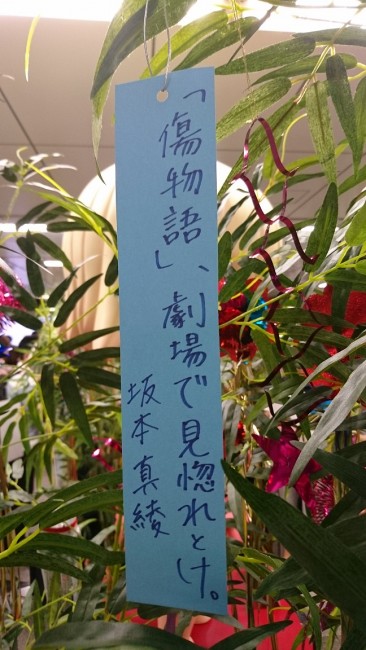 「傷物語」、劇場で見惚れとけ。
坂本真綾